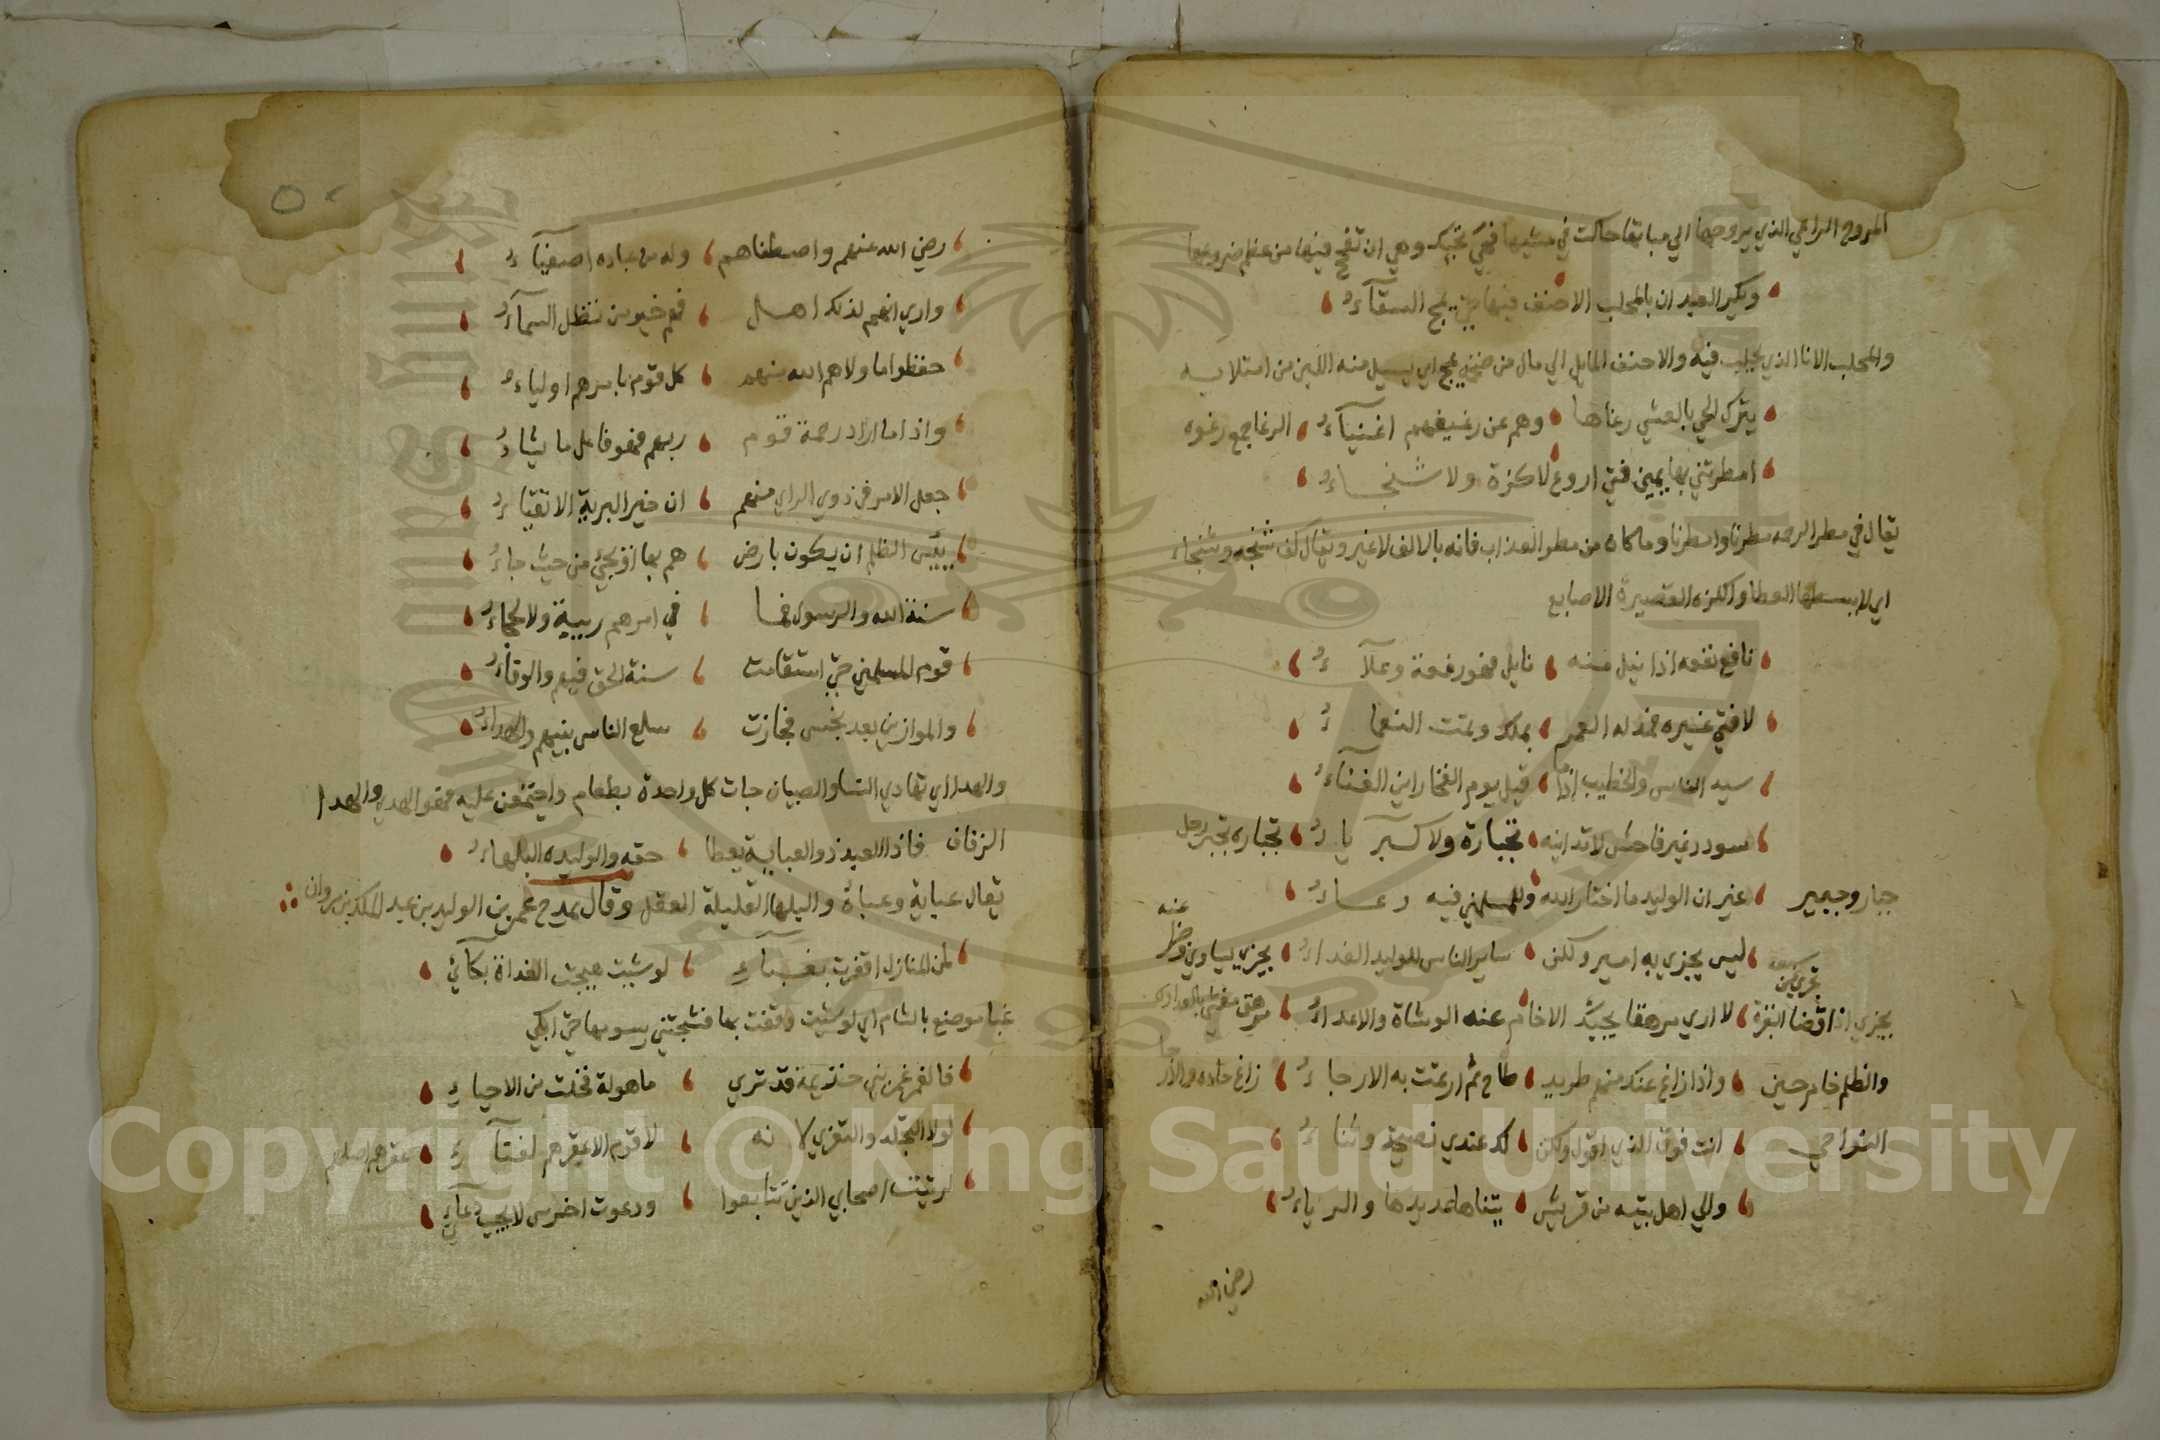 المروح الراعي الذي يروحها الي مباتها حاكت في مشيها فهي تحيك وهي ان تفحج فيها من عظم ضروعها
ويكبر العبدان بالمحلب الاحنف فيها حتي يمج السقآءُ
والمحلب الانا الذي يحلب فيه والاحنف المايل الي مال من ضخمه يمج اي يسيل منه اللبن من امتلايه
يترك الحي بالعشي رغاها وهم عن رغيفهم اغنيآءُ الرغا جمع رغوه
امطرتني بها يمين فتي اروع لا كزة ولا شنجاءُ
يقال في مطر الرحمه مطرنا وامطرنا وما كان من مطر العذاب فانه بالالف لا غير ويقال كف شنجه وشنجاء
اي لا يبسطها العطا والكزه القصيرة الاصابع
نافع نفعه اذا نيل منه نايل فهو رفعة وعلآءُ
لا فتي غيره فمد له العمر بملك وتمت النعماءُ
سيد الناس والخطيب اذا قيل يوم الفخار اين الغناءُ
سودد غير فاحش لا تدانيه تجبارة ولا كبرياءُ تجباره تجبر رجل
جبار وجبير غير ان الوليد ما اختار الله وللمسلمين فيه رعاءُ
ليس يجزي به امير ولكن ساير الناس للوليد الفداءُ يجزي يساوي وقظ عنه
يجزي اذا قضا لا اري مرهقا يجيئك الا خام عنه الوشاة والاعداءُ مرهق
والظلم خام حين واذا زاغ عنك منهم طريد طاح ثم ارتمت به الارجاءُ زاغ حاد والارجا
النواحي انت فوق الذي اقول ولكن لك عندي نصيحة وثناءُ
والي اهل بيته من قريش يتناها مديدها والرباءُ
رضي الله
رضي الله عنهم واصطفاهم وله من عباده اصفيآءُ
واري انهم لذلك اهل فهم خير من تظل السمآءُ
حفظوا ما ولاهم الله منهم كل قوم بامرهم اولياءُ
واذا ما اراد رحمة قوم ربهم فهو فاعل ما يشاءُ
جعل الامر في ذوي الراي منهم ان خير البرية الاتقياءُ
يئيس الظلم ان يكون بارض هم بها اذ يجي من حيث جاءُ
سنة الله والرسول فما في امرهم ريبة ولا لخجاءُ
قوم المسلمين حتي استقامت سنة الحق فيهم والوفاءُ
والموازين بعد بخس فجازت سلع الناس بينهم والهداءُ
والهدا اي تهادي النسا والصبيان جات كل واحدة بطعام واجتمعن عليه فهو الهدي والهدا
الزفاف فاذا العبد ذو العباية يعطا حقه والوليده البلهاءُ
يقال عباية وعباة والبلها القليلة العقل وقال يمدح عمر بن الوليد بن عبد الملك بن مروان
لمن المنازل اقفرت بغبآءِ لو شيت هيجت الغداة بكآئي
غبا موضع بالشام اي لو شيت وقفت بها فشجتني رسومها حتي ابكي
فالغمر غمر بني خذيمة قد تري ماهولة فخلت من الاحياءِ
لولا التجلد والتعزي لانه لا قوم الا عقرهم لفنآءِ عقرهم اصلهم
لرثيت اصحابي الذين تتابعوا ودعوت اخرس لا يجيب دعآئي